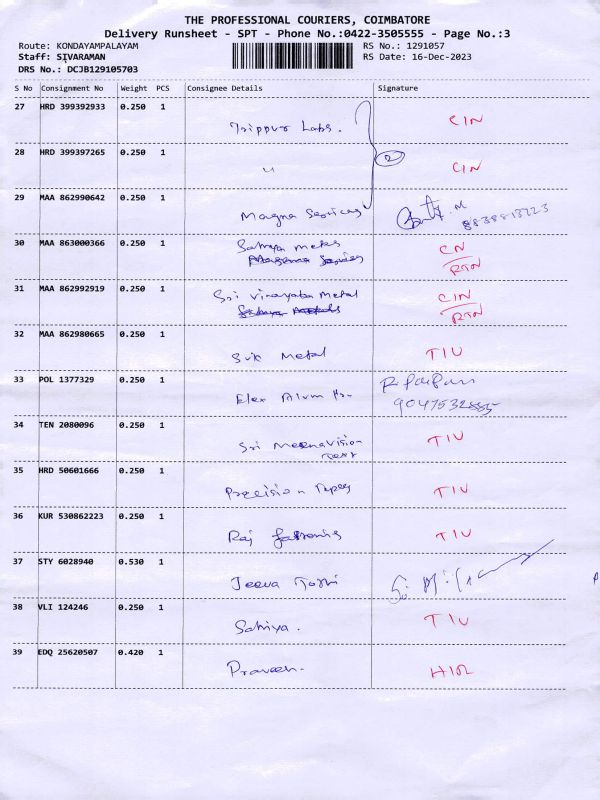 THE PROFESSIONAL COURIERS, COIMBATORE
Delivery Runsheet - SPT - Phone No.:0422-3505555 - Page No.:3
Route: KONDAYAMPALAYAM RS No.: 1291057
Staff: SIVARAMAN RS Date: 16-Dec-2023
DRS No.: DCJB129105703
S No Consignment No Weight PCS Consignee Details Signature
27 HRD 399392933 0.250 1
Trippur Labs. CIN
28 HRD 399397265 0.250 1 2
" CIN
29 MAA 862990642 0.250 1
Magna Services M
30 MAA 863000366 0.250 1 Sahaya Metes CN
Services RTN
31 MAA 862992919 0.250 1 Sri Vinayaka Metal CIN
RTN
32 MAA 862980665 0.250 1
Metal TIU
33 POL 1377329 0.250 1
Elex Alum 9047532885
34 TEN 2080096 0.250 1
Sri Meenavision TIU
35 HRD 50601666 0.250 1
Precision Tapes TIU
36 KUR 530862223 0.250 1
Raj TIU
37 STY 6028940 0.530 1
Jeeva
38 VLI 124246 0.250 1
Sahiya. TIU
39 EDQ 25620507 0.420 1
Praveen.